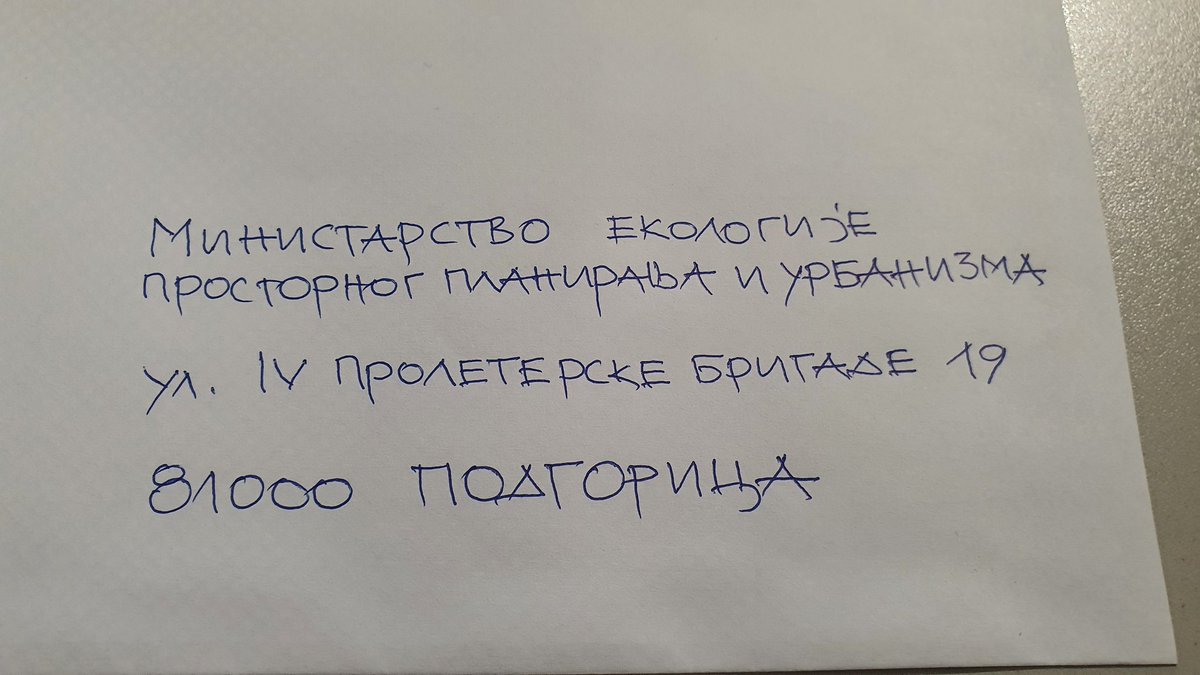 МИНИСТАРСТВО ЕКОЛОГИЈЕ
ПРОСТОРНОГ ПЛАНИРАЊА И УРБАНИЗМА
УЛ. IV ПРОЛЕТЕРСКЕ БРИГАДЕ 19
81000 ПОДГОРИЦА